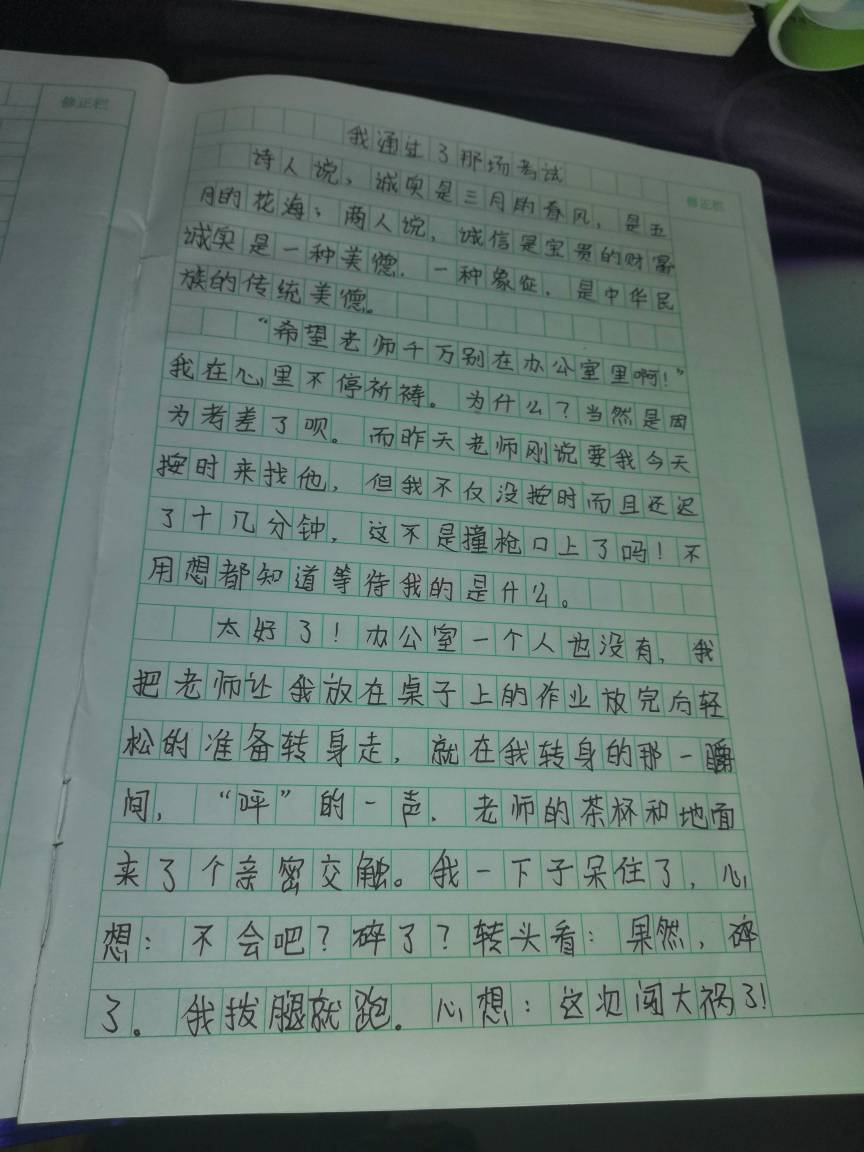 修正栏
修正栏
我通过了那场考试
诗人说,诚实是三月的春风,是五
月的花海;商人说,诚信是宝贵的财富
诚实是一种美德,一种象征,是中华民
族的传统美德。
“希望老师千万别在办公室里啊!”
我在心里不停祈祷。为什么?当然是因
为考差了呗。而昨天老师刚说要我今天
按时来找他,但我不仅没按时而且还迟
了十几分钟,这不是撞枪口上了吗!不
用想都知道等待我的是什么。
太好了!办公室一个人也没有,我
把老师让我放在桌子上的作业放完后轻
松的准备转身走,就在我转身的那一瞬
间,“呯”的一声,老师的茶杯和地面
来了个亲密交触。我一下子呆住了,心
想:不会吧?碎了?转头看:果然,碎
了。我拔腿就跑。心想:这次闯大祸了!